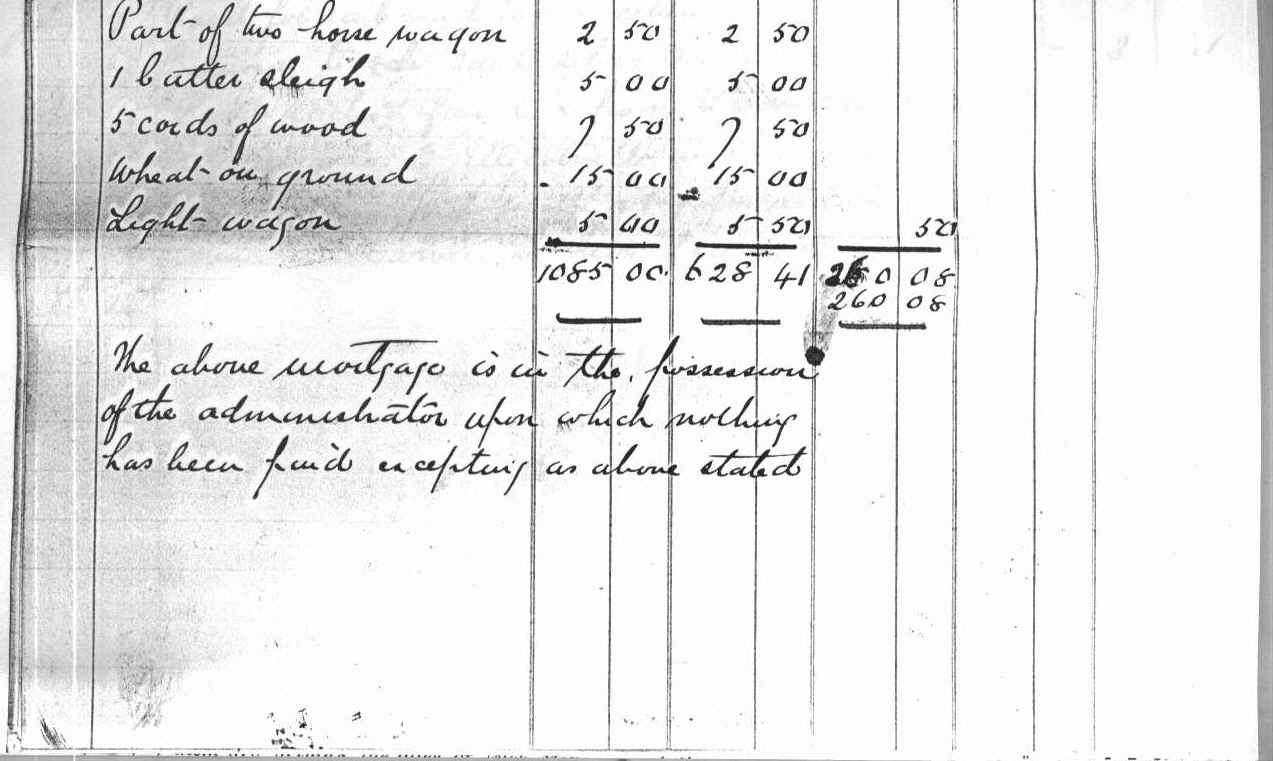 Part of two horse wagon 2 50 2 50
1 cutter sleigh 5 00 5 00
5 cords of wood 7 50 7 50
Wheat on ground 15 00 15 00
Light wagon 5 00 5 50 50
1085 00 628 41 260 08
260 08
The above mortgage is in the possession
of the administrator upon which nothing
has been paid excepting as above stated